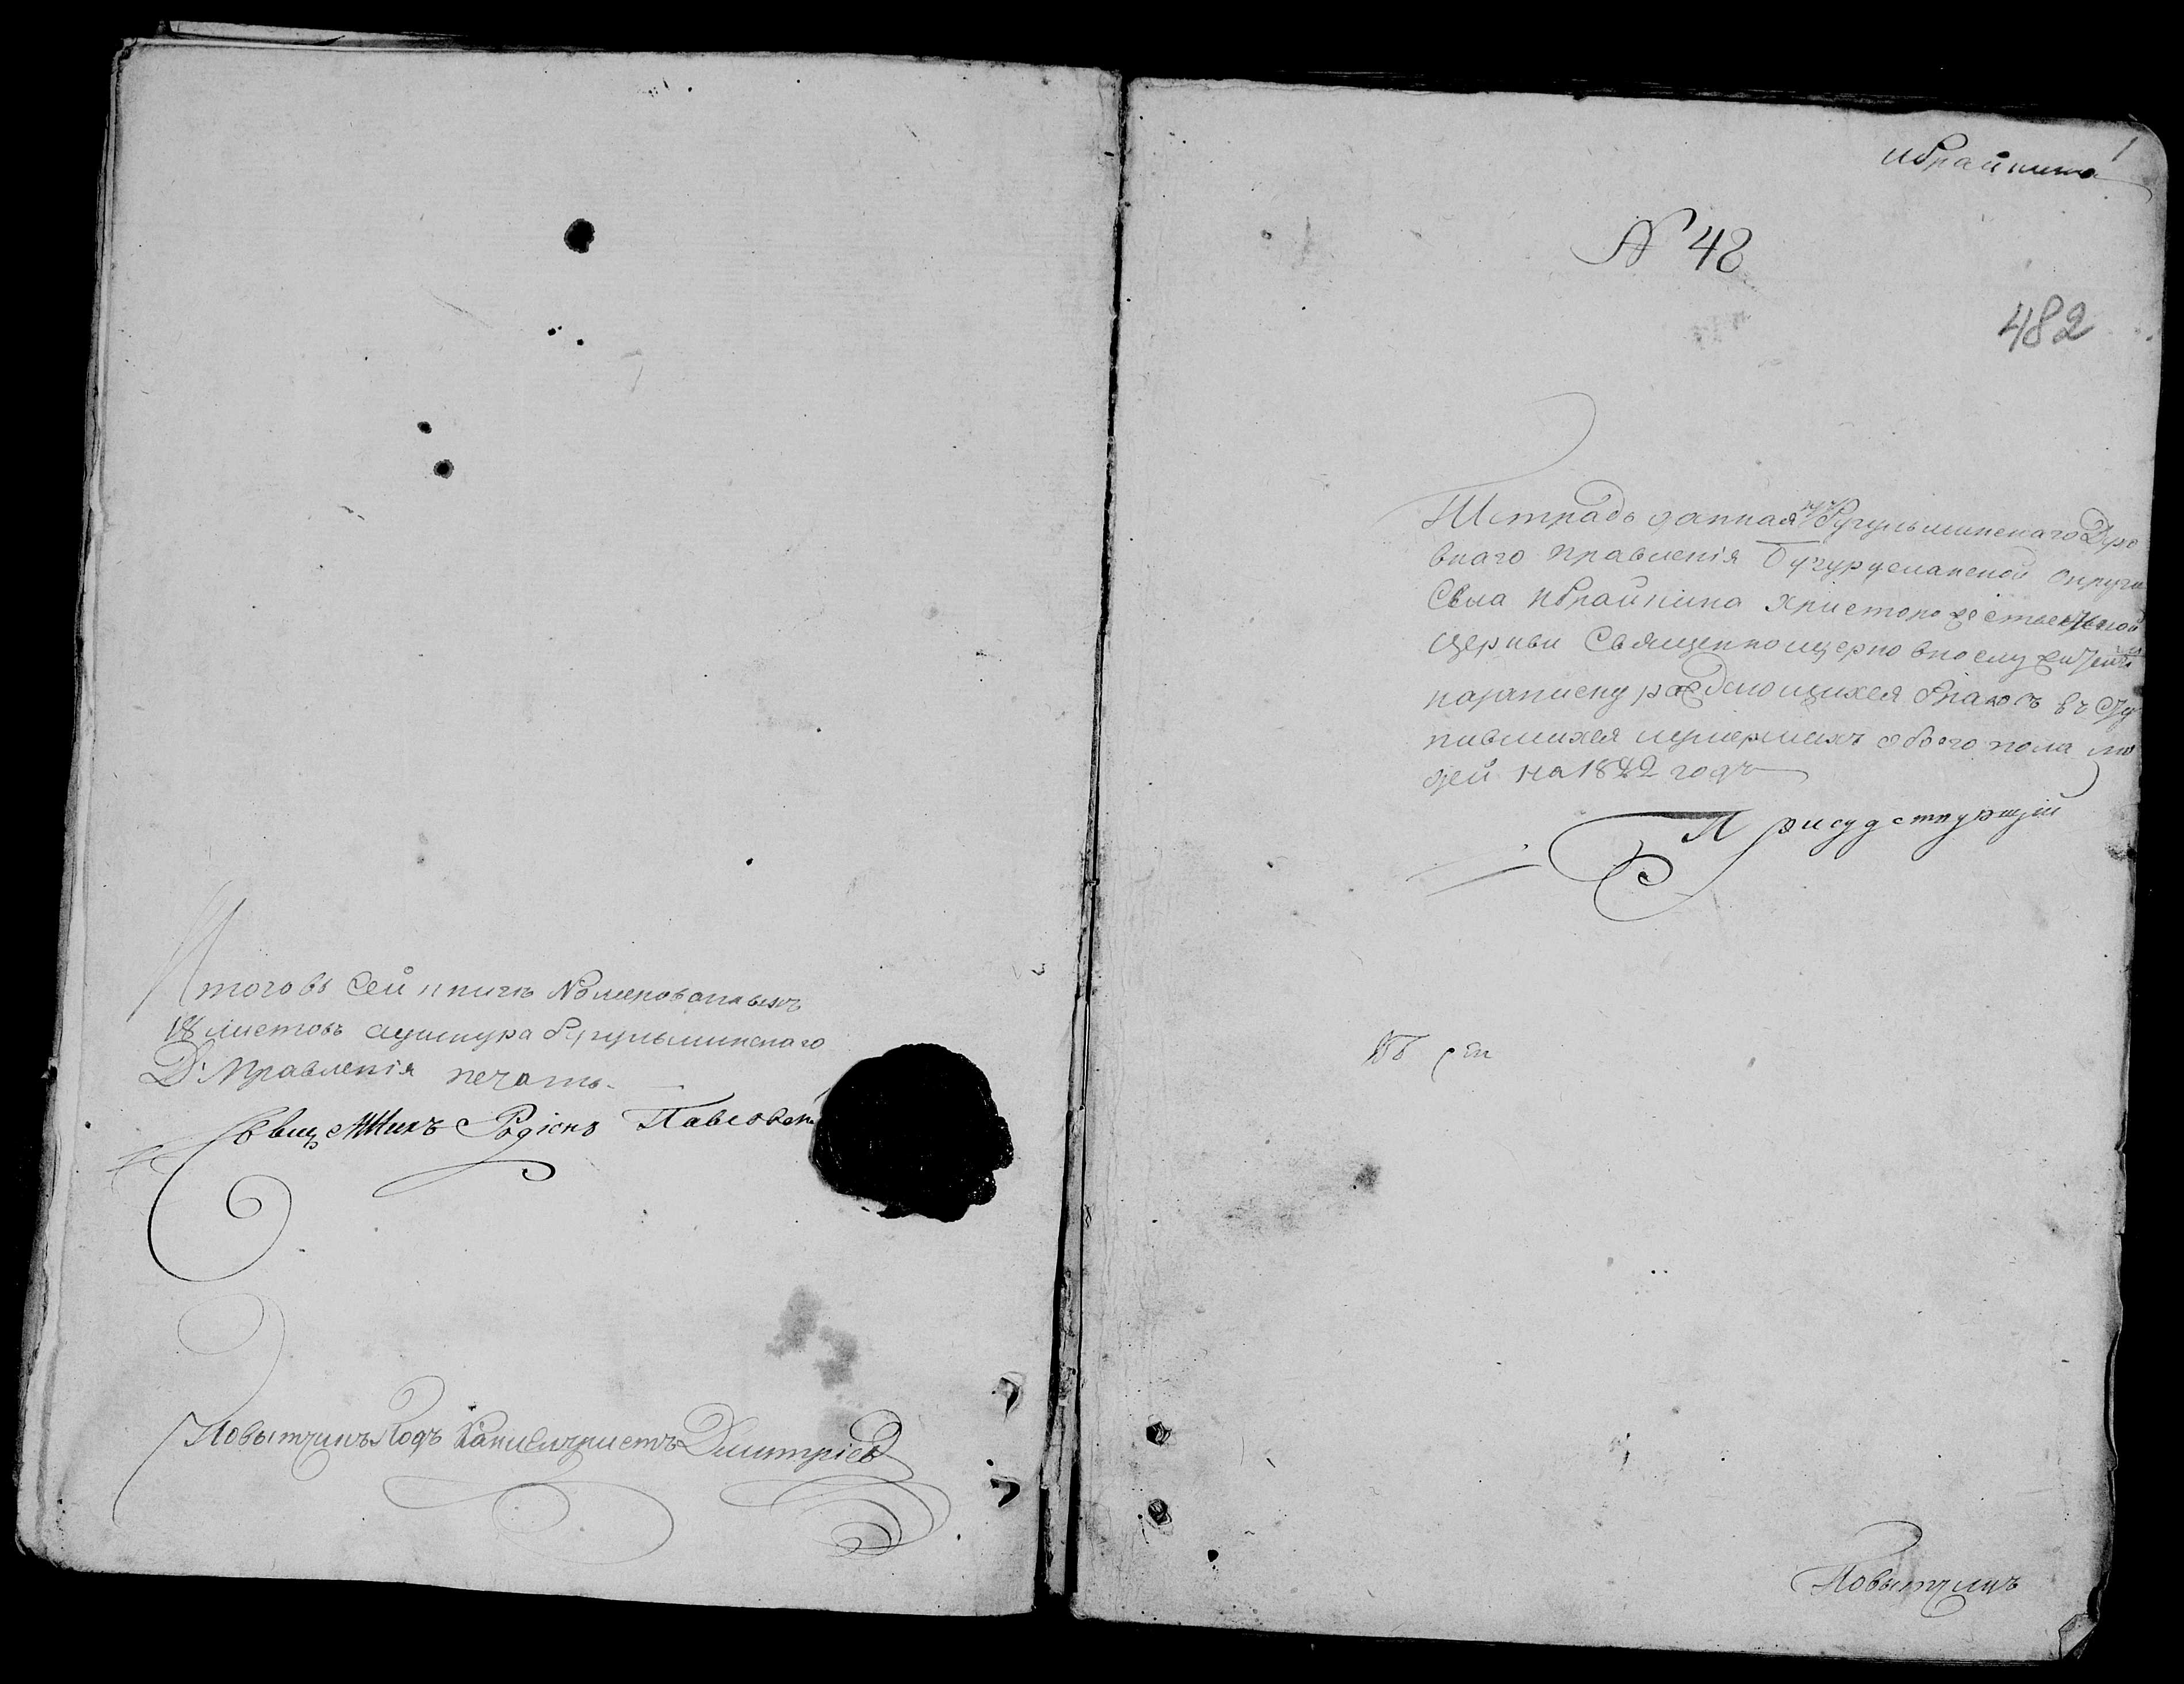 Итого въ сей книгѣ Номерованныхъ
18 листовъ аушнура Бугульминскаго
Д: Правленія печать.
Священникъ Родіонъ Павловск
Повытчикъ Подъ Канцеляристъ Дмитріевъ
1
Ибрайкина
№ 48
482
Тетрадь данная изъ Бугульминскаго Духо
внаго правленія Бугурусланской округи
Села Ибрайкина христорождественской
церкви Священноцерковнослужителямъ
назаписку раждающихся бракосъ въ сту
пившихся иумершихъ обоего пола лю
дей на 1822 годъ
Присудствующій
Повытчикъ